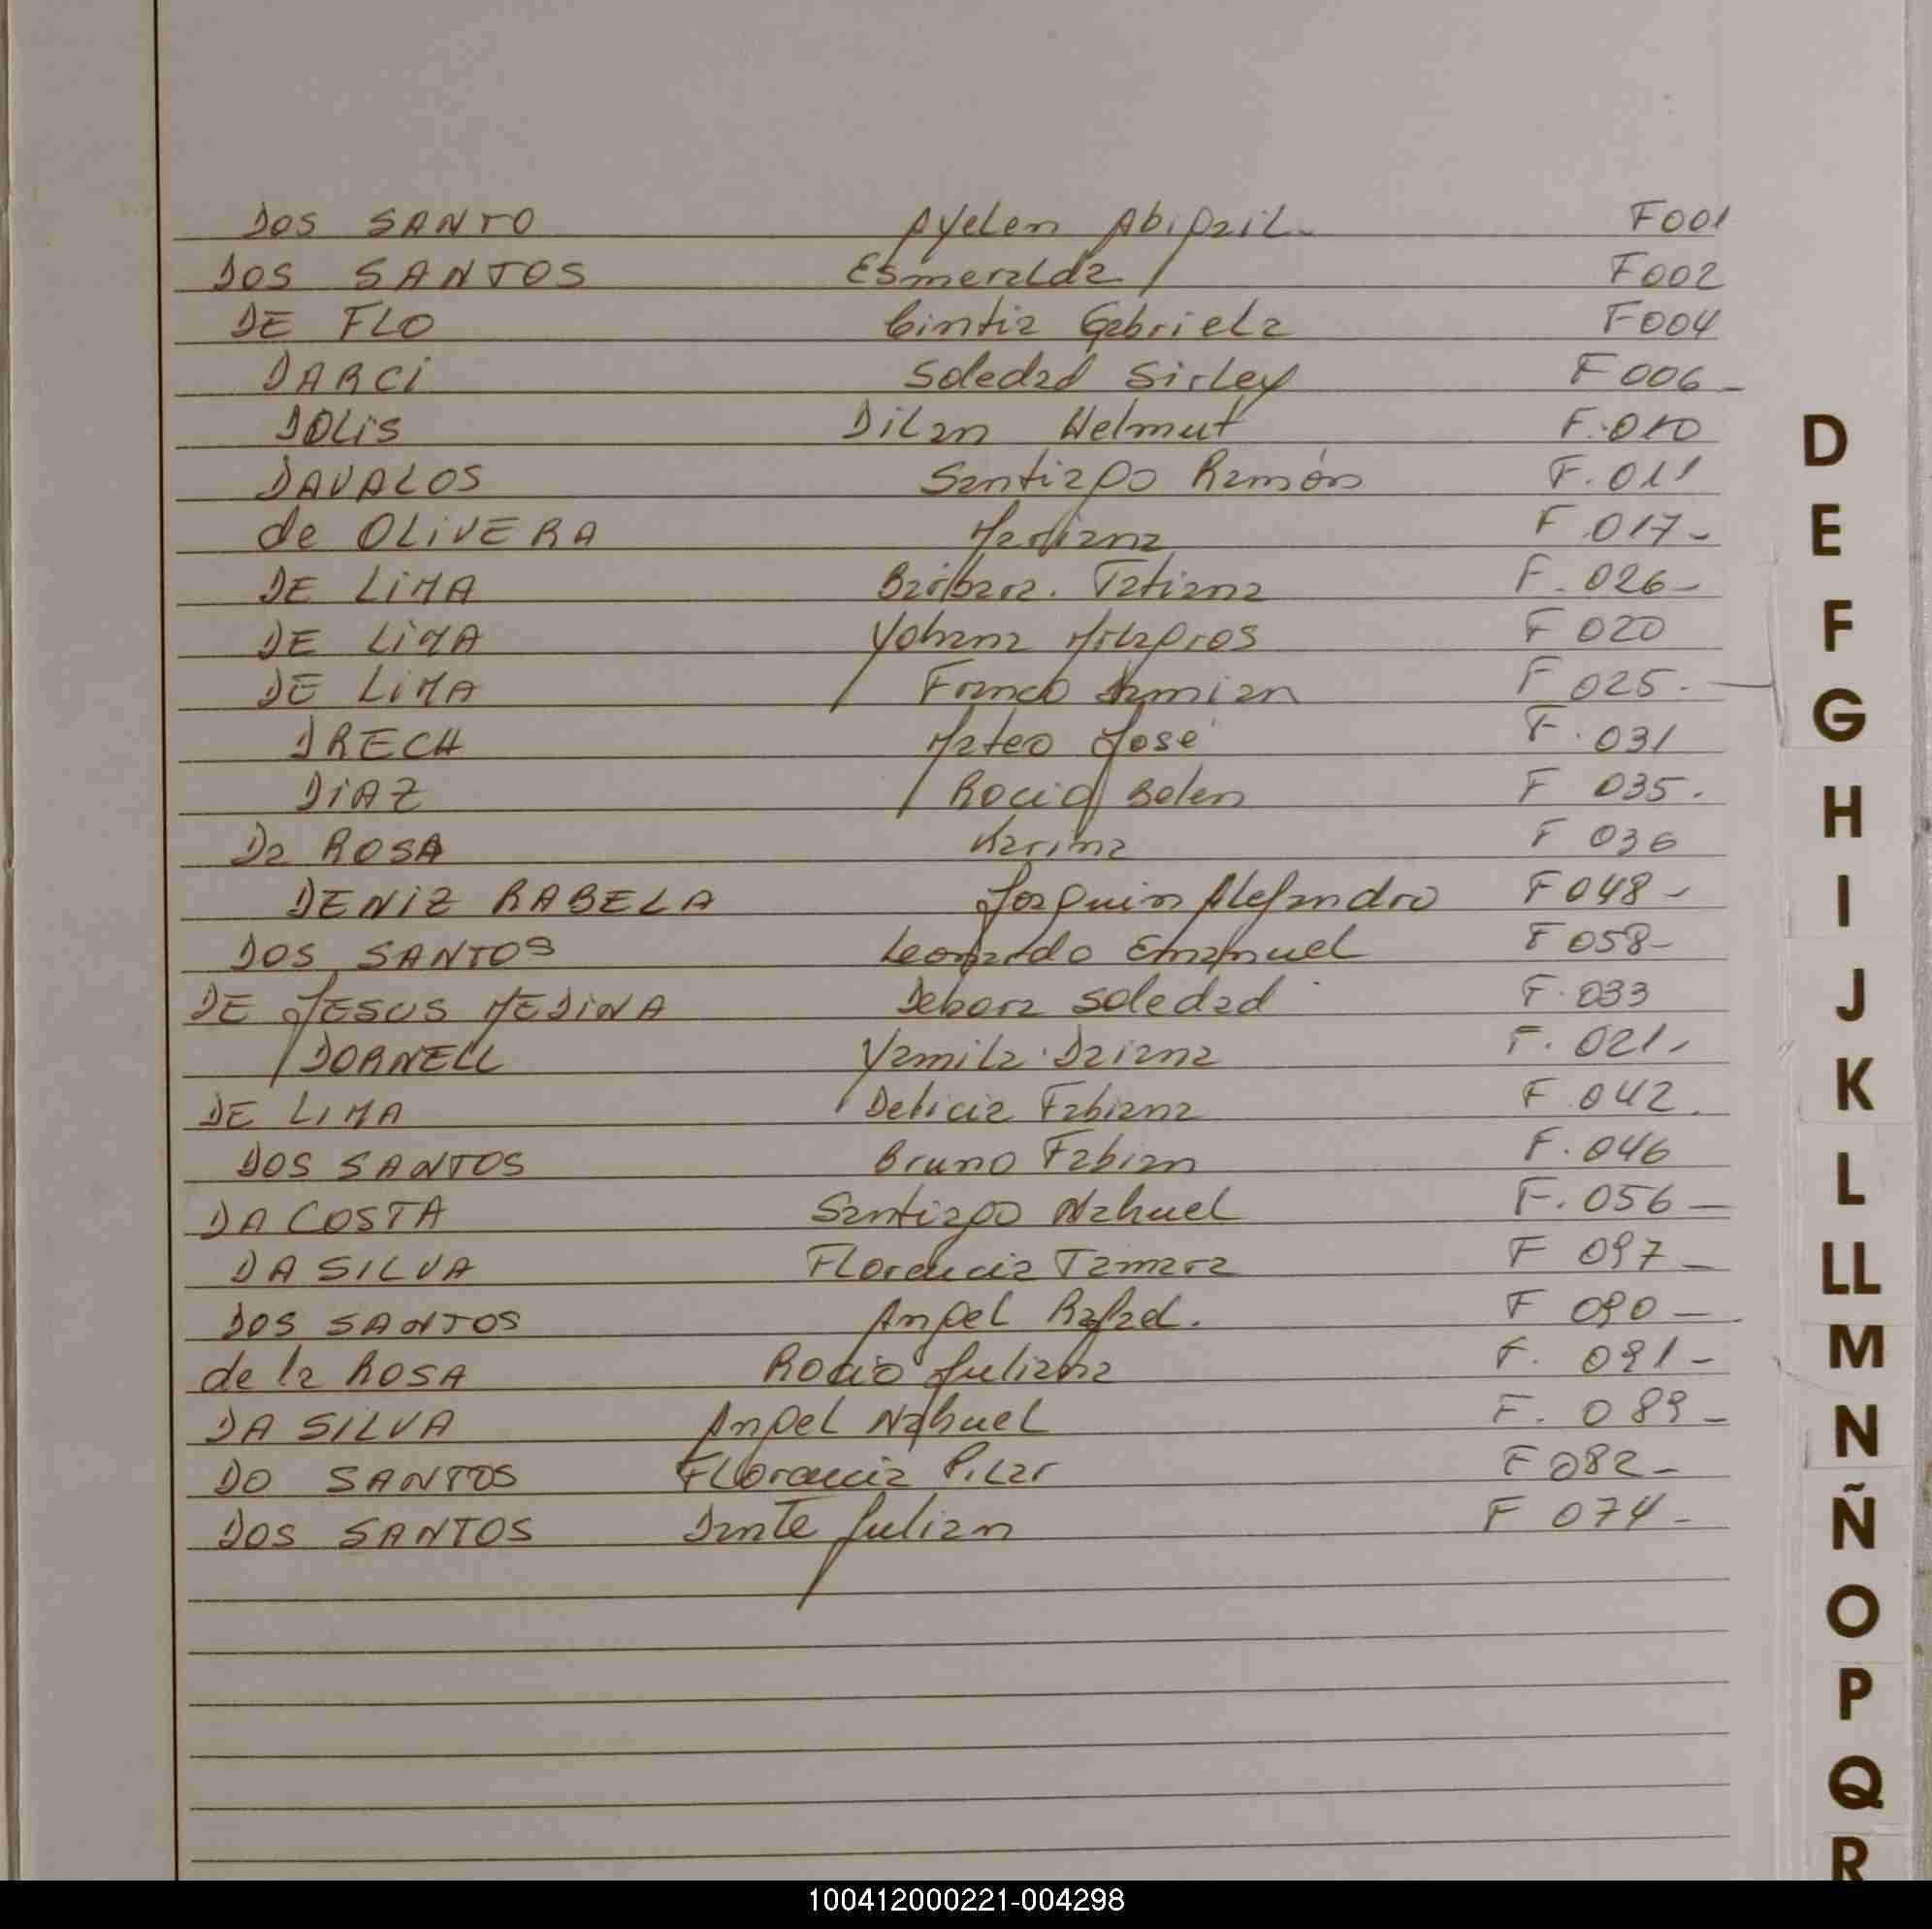 DOS SANTO Ayelen Abigail. F001
DOS SANTOS Esmeralda F002
DE FLO Cintia Gabriela F004
DARCI Soledad Sirley F 006-
DOLIS Dilan Helmut F.010
DAVALOS Santiago Ramón F. 011
de OLIVERA Mariana F 017-
DE LIMA Bárbara. Tatiana F. 026-
DE LIMA Yohana Milagros F 020
DE LIMA Franco Damian F 025.
DRECH Mateo José F. 031
DIAZ Rocio Belen F 035.
Da ROSA Karina F 036
DENIZ RABELA Joaquin Alejandro F 048-
DOS SANTOS Leonardo Emanuel F 058-
DE JESUS MEDINA Debora Soledad F. 033
DORNELL Yamila Daiana F. 021.
DE LIMA Delicia Fabiana F. 042.
DOS SANTOS Bruno Fabian F. 046
DA COSTA Santiago Nahuel F. 056-
DA SILVA Florencia Tamara F 097-
DOS SANTOS Angel Rafael. F 090-
de la ROSA Rocio Juliana F. 091-
DA SILVA Angel Nahuel F. 089-
DO SANTOS Florencia Pilar F 082-
DOS SANTOS Dante Julian F 074-
D
E
F
G
H
I
J
K
L
LL
M
N
Ñ
O
P
Q
R
100412000221-004298